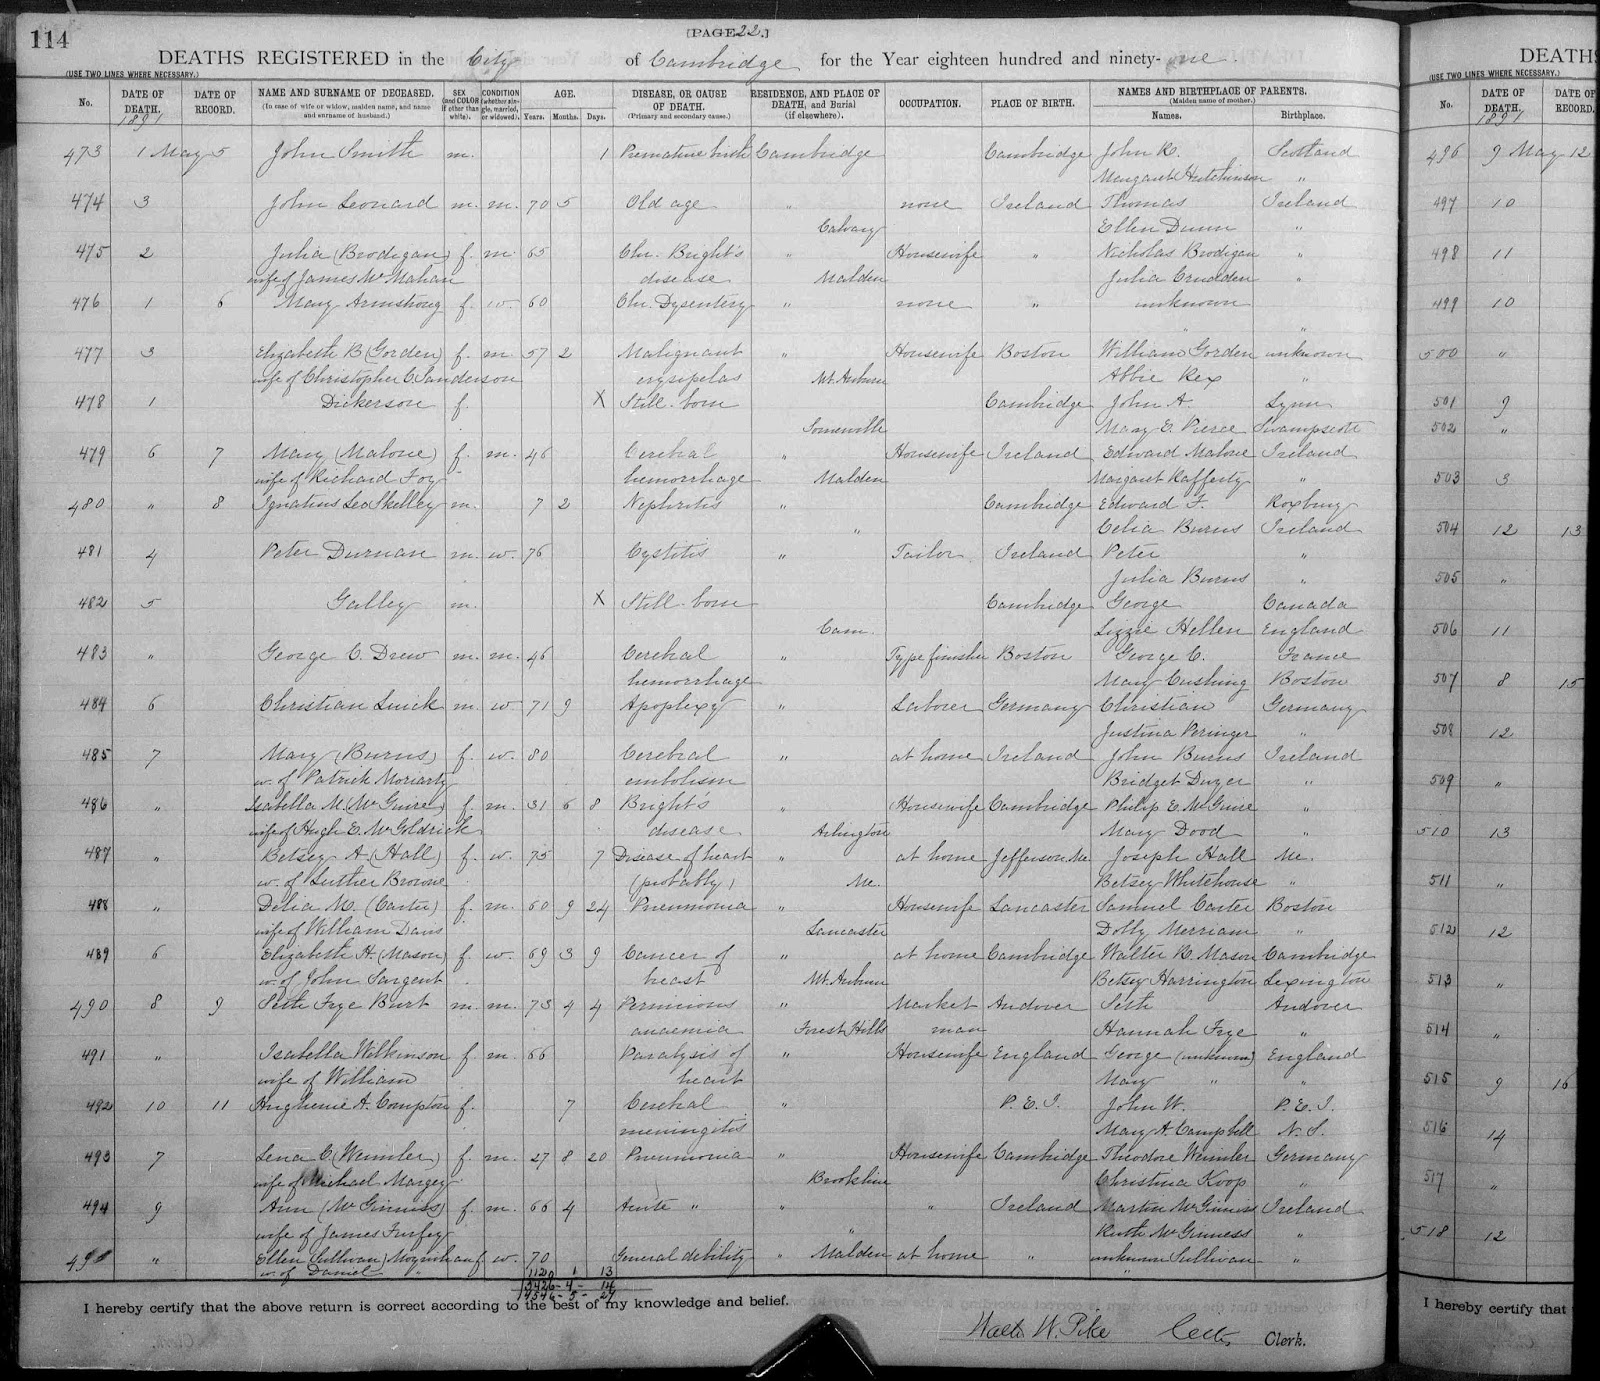 114
[PAGE 22.]
DEATHS REGISTERED in the City of Cambridge for the Year eighteen hundred and ninety-one.
(USE TWO LINES WHERE NECESSARY.)
No. DATE OF DEATH. 1891 DATE OF RECORD. NAME AND SURNAME OF DECEASED. (In case of wife or widow, maiden name, and name and surname of husband.) SEX (and COLOR if other than white). CONDITION (whether single, married, or widowed). AGE. Years. Months. Days. DISEASE, OR CAUSE OF DEATH. (Primary and secondary cause.) RESIDENCE, AND PLACE OF DEATH, and Burial (if elsewhere). OCCUPATION. PLACE OF BIRTH. NAMES AND BIRTHPLACE OF PARENTS. (Maiden name of mother.) Names. Birthplace.
473 1 May 5 John Smith m. 1 Premature birth Cambridge Cambridge John R. Scotland
Margaret Hutchinson "
474 3 John Leonard m. m. 70 5 Old age " none Ireland Thomas Ireland
Calvary Ellen Dunn "
475 2 Julia (Brodigan) f. m. 65 Chr. Bright's " Housewife " Nicholas Brodigan "
wife of James McMahan disease Malden Julia Crudden "
476 1 6 Mary Armstrong f. w. 60 Chr. Dysentery " none " unknown
" "
477 3 Elizabeth B (Gorden) f. m. 57 2 Malignant " Housewife Boston William Gorden unknown
wife of Christopher C. Sanderson erysipelas Mt. Auburn Abbie Rex "
478 1 Dickerson f. X Still-born Cambridge John A. Lynn
Somerville Mary E. Pierce Swampscott
479 6 7 Mary (Malone) f. m. 46 Cerebral " Housewife Ireland Edward Malone Ireland
wife of Richard Foy hemorrhage Malden Margaret Rafferty "
480 " 8 Ignatius Leo Skelley m. 7 2 Nephritis " Cambridge Edward F. Roxbury
" Celia Burns Ireland
481 4 Peter Durnan m. w. 76 Cystitis " Tailor Ireland Peter "
Julia Burns "
482 5 Galley m. X Still-born Cambridge George Canada
Cam. Lizzie Hellen England
483 " George C. Drew m. m. 46 Cerebral " Type finisher Boston George C. France
hemorrhage Mary Cushing Boston
484 6 Christian Linck m. w 71 9 Apoplexy " Laborer Germany Christian Germany
Justina Peringer "
485 7 Mary (Burns) f. w. 80 Cerebral " at home Ireland John Burns Ireland
w. of Patrick Moriarty embolism Bridget Dwyer "
486 " Isabella M. (McGuire) f. m. 31 6 8 Bright's " Housewife Cambridge Philip E. McGuire "
wife of Hugh E. McGoldrick disease Arlington Mary Dood "
487 " Betsey A (Hall) f. w. 75 7 Disease of heart " at home Jefferson Me Joseph Hall Me.
w. of Luther Browne (probably) Me. Betsey Whitehouse "
488 " Delia M. (Carter) f. m. 60 9 24 Pneumonia " Housewife Lancaster Samuel Carter Boston
wife of William Davis Lancaster Dolly Merriam "
489 6 Elizabeth H. (Mason) f. w. 69 3 9 Cancer of " at home Cambridge Walter R. Mason Cambridge
w. of John Sargent Mt. Auburn Betsey Harrington Lexington
490 8 9 Seth Frye Burt m. m. 73 4 4 Pernicious " Market Andover Seth Andover
anaemia Forest Hills man Hannah Frye "
491 " Isabella Wilkinson f m. 66 Paralysis of " Housewife England George (unknown) England
wife of William heart Mary " "
492 10 11 A. Compton f. 7 Cerebral " P. E. I. John W. P. E. I.
meningitis Mary A. Campbell N. S.
493 7 Lena C. f. m. 27 8 20 Pneumonia " Housewife Cambridge Theodore Germany
wife of Michael Brookline Christina Koop "
494 9 Ann (McGinness) f. m. 66 4 Acute " " " Ireland Martin McGinness Ireland
wife of James Furfey " Ruth McGinness "
" Ellen (Sullivan) Moynihan f w. 70 General debility " Malden at home " unknown Sullivan "
w. of Daniel " "
1120 1 13
3426-4-14
4546-5-27
I hereby certify that the above return is correct according to the best of my knowledge and belief.
W. Pike City Clerk.
DEATHS
(USE TWO LINES WHERE NECESSARY.)
No. DATE OF DEATH. 1891 DATE OF RECORD.
496 9 May 12
497 10
498 11
499 10
500 "
501 9
502 "
503 3
504 12 13
505 "
506 11
507 8 15
508 12
509 "
510 13
511 "
512 12
513 "
514 "
515 9 16
516 14
517 "
518 12
I hereby certify that